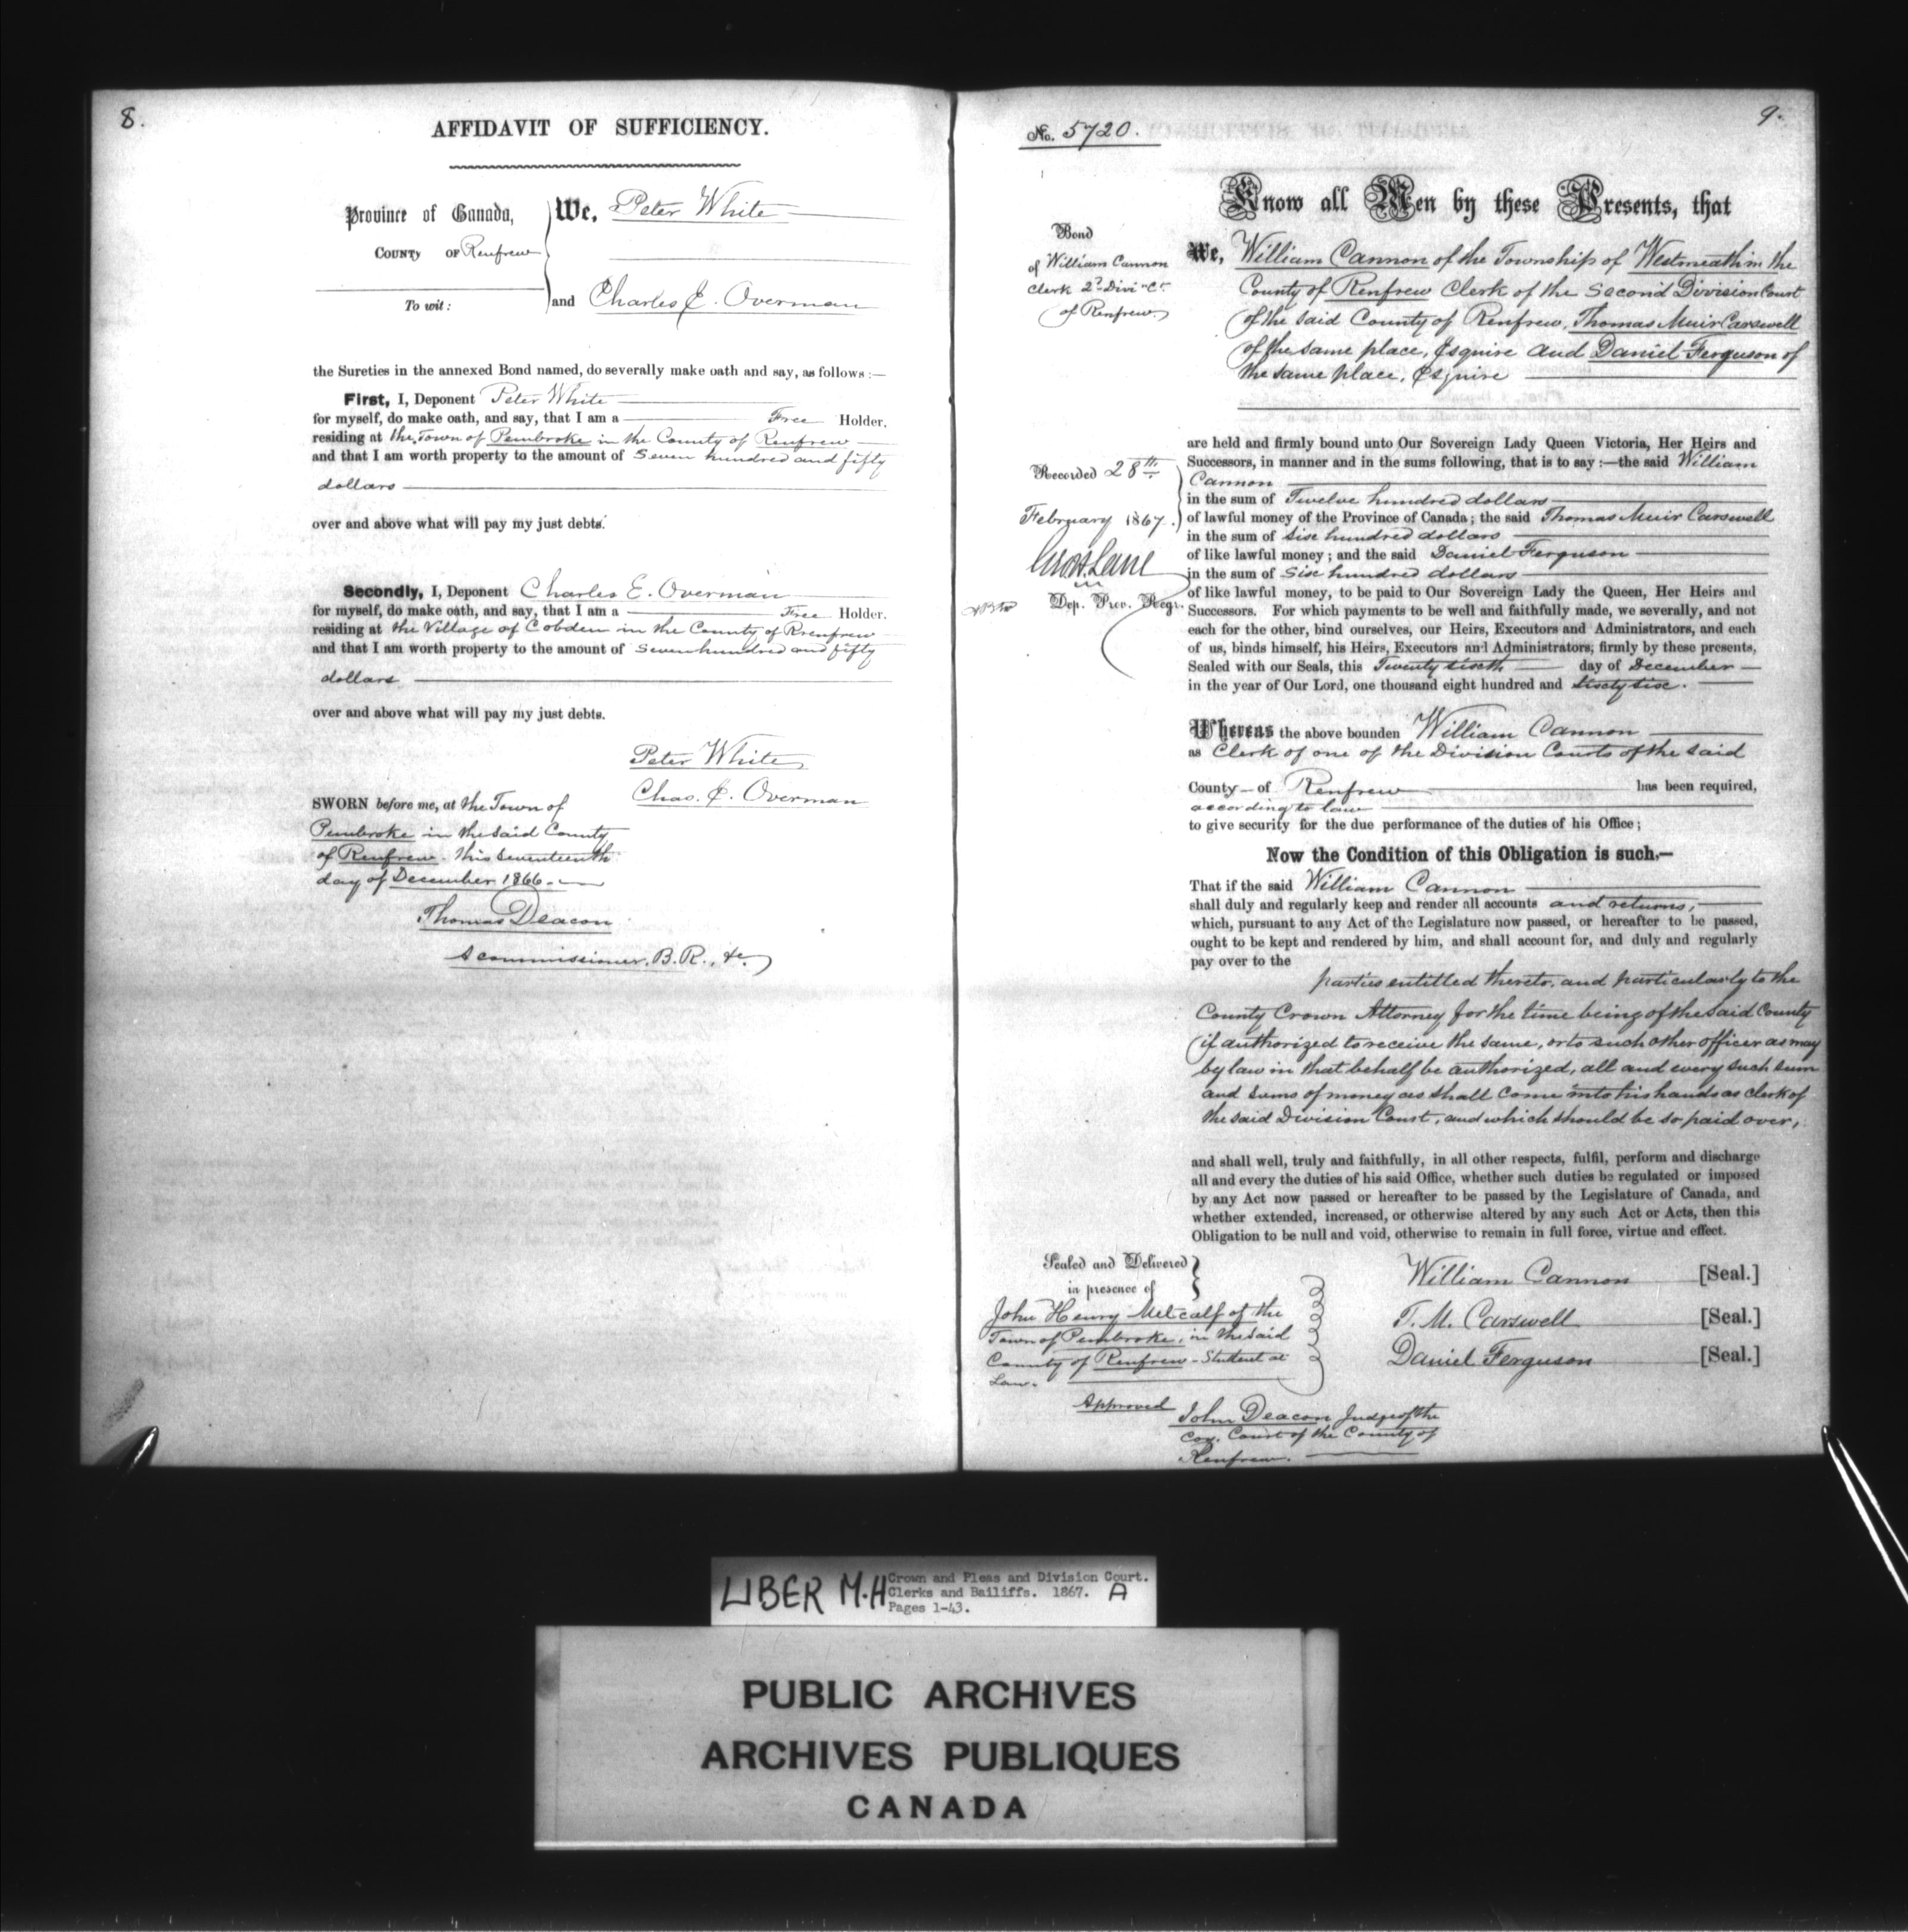 8.
AFFIDAVIT OF SUFFICIENCY.
Province of Canada,
County of Renfrew
To wit:
We, Peter White
and Charles E. Overman
the Sureties in the annexed Bond named, do severally make oath and say, as follows:—
First, I, Deponent Peter White
for myself, do make oath, and say, that I am a Free Holder,
residing at the Town of Pembroke in the County of Renfrew
and that I am worth property to the amount of Seven hundred and fifty
dollars
over and above what will pay my just debts.
Secondly, I, Deponent Charles E. Overman
for myself, do make oath, and say, that I am a Free Holder.
residing at the Village of Cobden in the County of Renfrew
and that I am worth property to the amount of Seven hundred and fifty
dollars
over and above what will pay my just debts.
Peter White
Chas. E. Overman
SWORN before me, at the Town of
Pembroke in the said County
of Renfrew. this Seventeenth
day of December 1866.
Thomas Deacon
A commissioner. B.R., &c.
9.
No. 5720.
Bond
of William Cannon
Clerk 2d Divn Ct.
of Renfrew.
Recorded 28th
February 1867.
Dep. Prov. Regr.
Know all Men by these Presents, that
We, William Cannon of the Township of Westmeath in the
County of Renfrew Clerk of the Second Division Court
of the said County of Renfrew, Thomas Muir Carswell
of the same place, Esquire and Daniel Ferguson of
the same place, Esquire
are held and firmly bound unto Our Sovereign Lady Queen Victoria, Her Heirs and
Successors, in manner and in the sums following, that is to say:—the said William
Cannon
in the sum of Twelve hundred dollars
of lawful money of the Province of Canada; the said Thomas Muir Carswell
in the sum of Six hundred dollars
of like lawful money; and the said Daniel Ferguson
in the sum of Six hundred dollars
of like lawful money, to be paid to Our Sovereign Lady the Queen, Her Heirs and
Successors. For which payments to be well and faithfully made, we severally, and not
each for the other, bind ourselves, our Heirs, Executors and Administrators, and each
of us, binds himself, his Heirs, Executors and Administrators, firmly by these presents,
Sealed with our Seals, this Twenty sixth day of December
in the year of Our Lord, one thousand eight hundred and Sixty six.
Whereas the above bounden William Cannon
as Clerk of one of the Division Courts of the said
County of Renfrew has been required,
according to law
to give security for the due performance of the duties of his Office;
Now the Condition of this Obligation is such,—
That if the said William Cannon
shall duly and regularly keep and render all accounts and returns,
which, pursuant to any Act of the Legislature now passed, or hereafter to be passed,
ought to be kept and rendered by him, and shall account for, and duly and regularly
pay over to the
parties entitled thereto, and particularly to the
County Crown Attorney for the time being of the said County
if authorized to receive the same, or to such other officer as may
by law in that behalf be authorized, all and every such sum
and sums of money as shall come into his hands as clerk of
the said Division Court, and which should be so paid over,
and shall well, truly and faithfully, in all other respects, fulfil, perform and discharge
all and every the duties of his said Office, whether such duties be regulated or imposed
by any Act now passed or hereafter to be passed by the Legislature of Canada, and
whether extended, increased, or otherwise altered by any such Act or Acts, then this
Obligation to be null and void, otherwise to remain in full force, virtue and effect.
Sealed and Delivered
in presence of
John Henry Metcalf of the
Town of Pembroke, in the said
County of Renfrew - Student at
Law.
William Cannon [Seal.]
T. M. Carswell [Seal.]
Daniel Ferguson [Seal.]
Approved
John Deacon Judge of the
Coy. Court of the County of
Renfrew.
LIBER M.H
Crown and Pleas and Division Court.
Clerks and Bailiffs. 1867. A
Pages 1-43.
PUBLIC ARCHIVES
ARCHIVES PUBLIQUES
CANADA